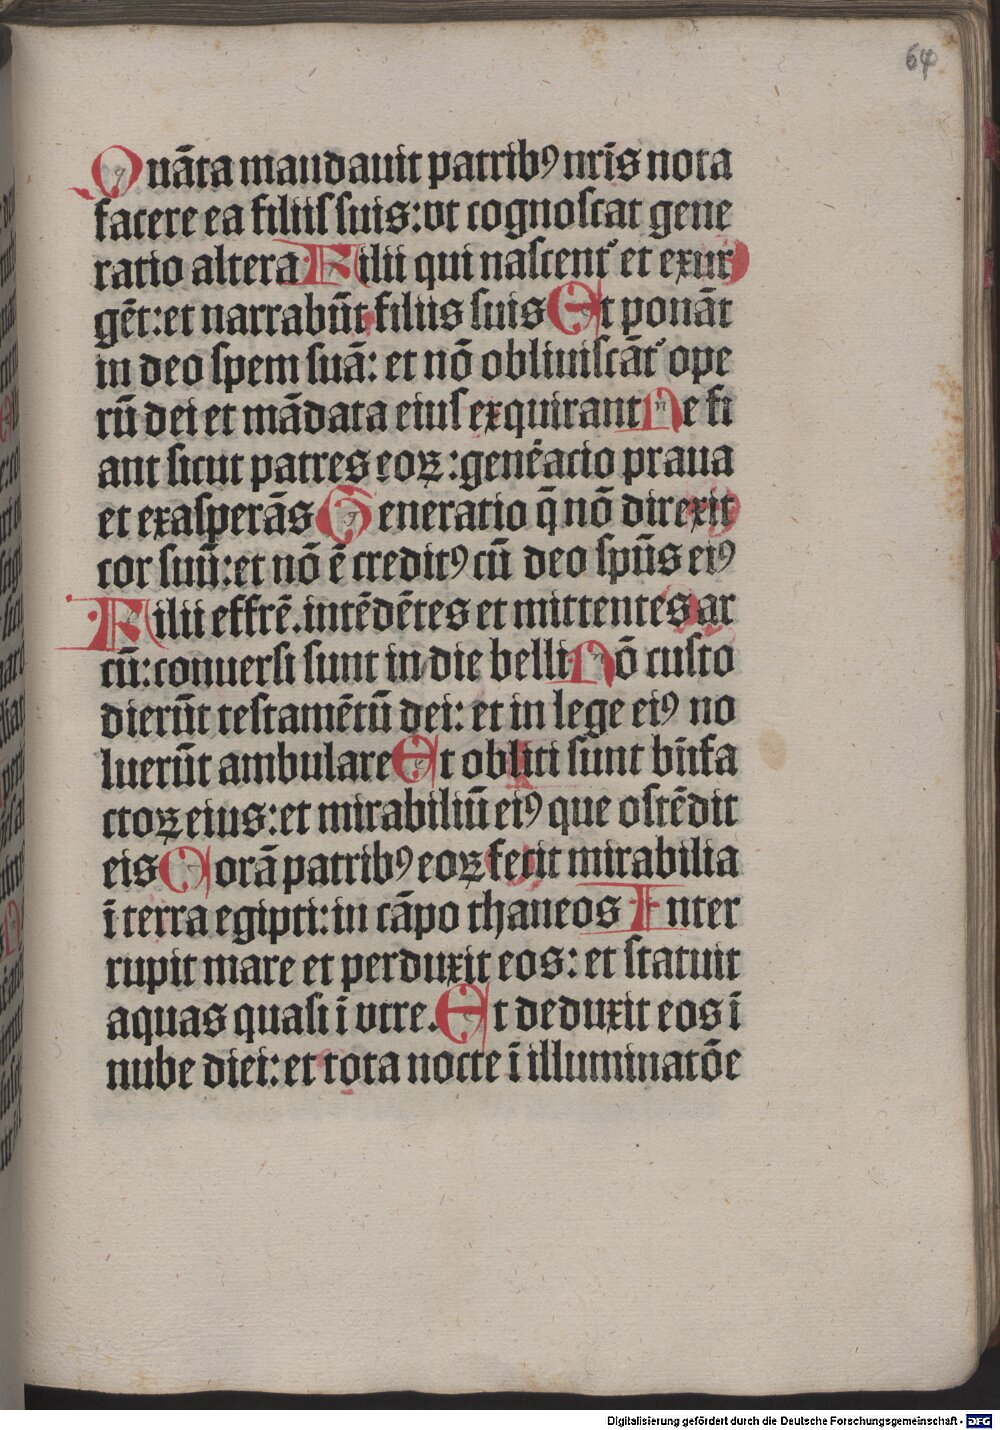 64
Quāta mandauit patribꝰ nr̄is nota
facere ea filiis suis: vt cognoscat gene
ratio altera Filii qui nascent᷑ et exur
gēt: et narrabūt filiis suis Et ponāt
in deo spem suā: et nō obliuiscāt᷑ ope
rū dei et mādata eius exquirant Ne fi
ant sicut patres eoꝝ: gen̄eatio praua
et exasperās Generatio q̄ nō direxit
cor suū: et nō ē creditꝰ cū deo spūs eiꝰ
Filii effrē. intēdētes et mittentes ar
cū: conuersi sunt in die belli Nō custo
dierūt testamētū dei: et in lege eiꝰ no
luerūt ambulare Et obliti sunt bn̄fa
ctoꝝ eius: et mirabiliū eiꝰ que ostēdit
eis Corā patribꝰ eoꝝ fecit mirabilia
ī terra egipti: in cāpo thaneos Inter
rupit mare et perduxit eos: et statuit
aquas quasi ī vtre. Et deduxit eos ī
nube diei: et tota nocte ī illuminatōe
Digitalisierung gefördert durch die Deutsche Forschungsgemeinschaft - DFG